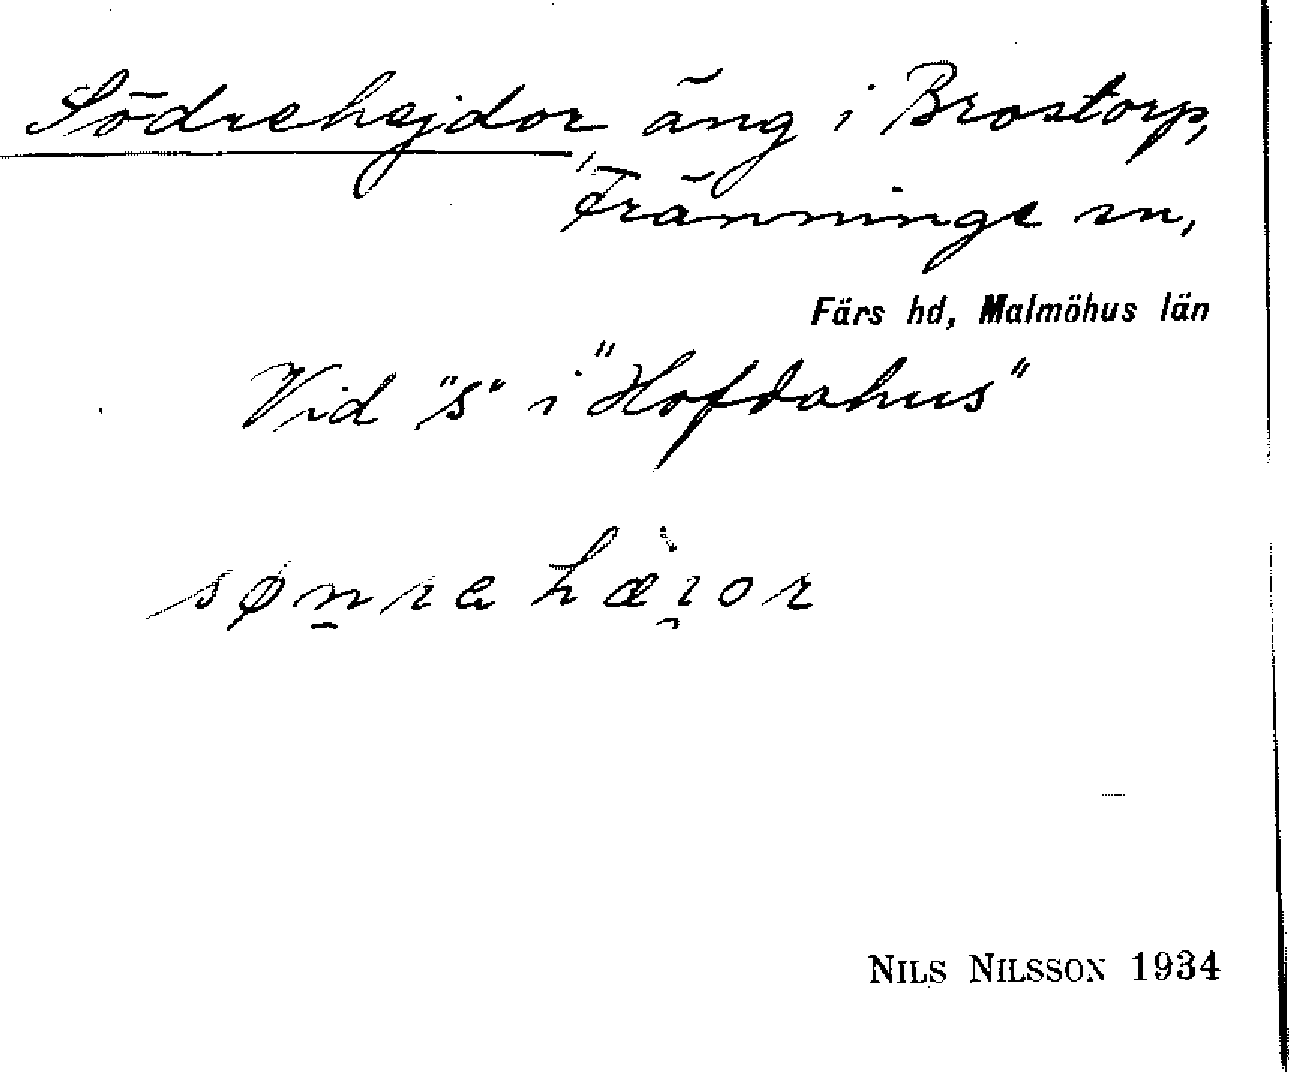 Södrehejdor, äng i Brostorp,
Fränninge sn,
Färs hd, Malmöhus län
Vid "S" i "Hofdahus"
NILS NILSSON 1934